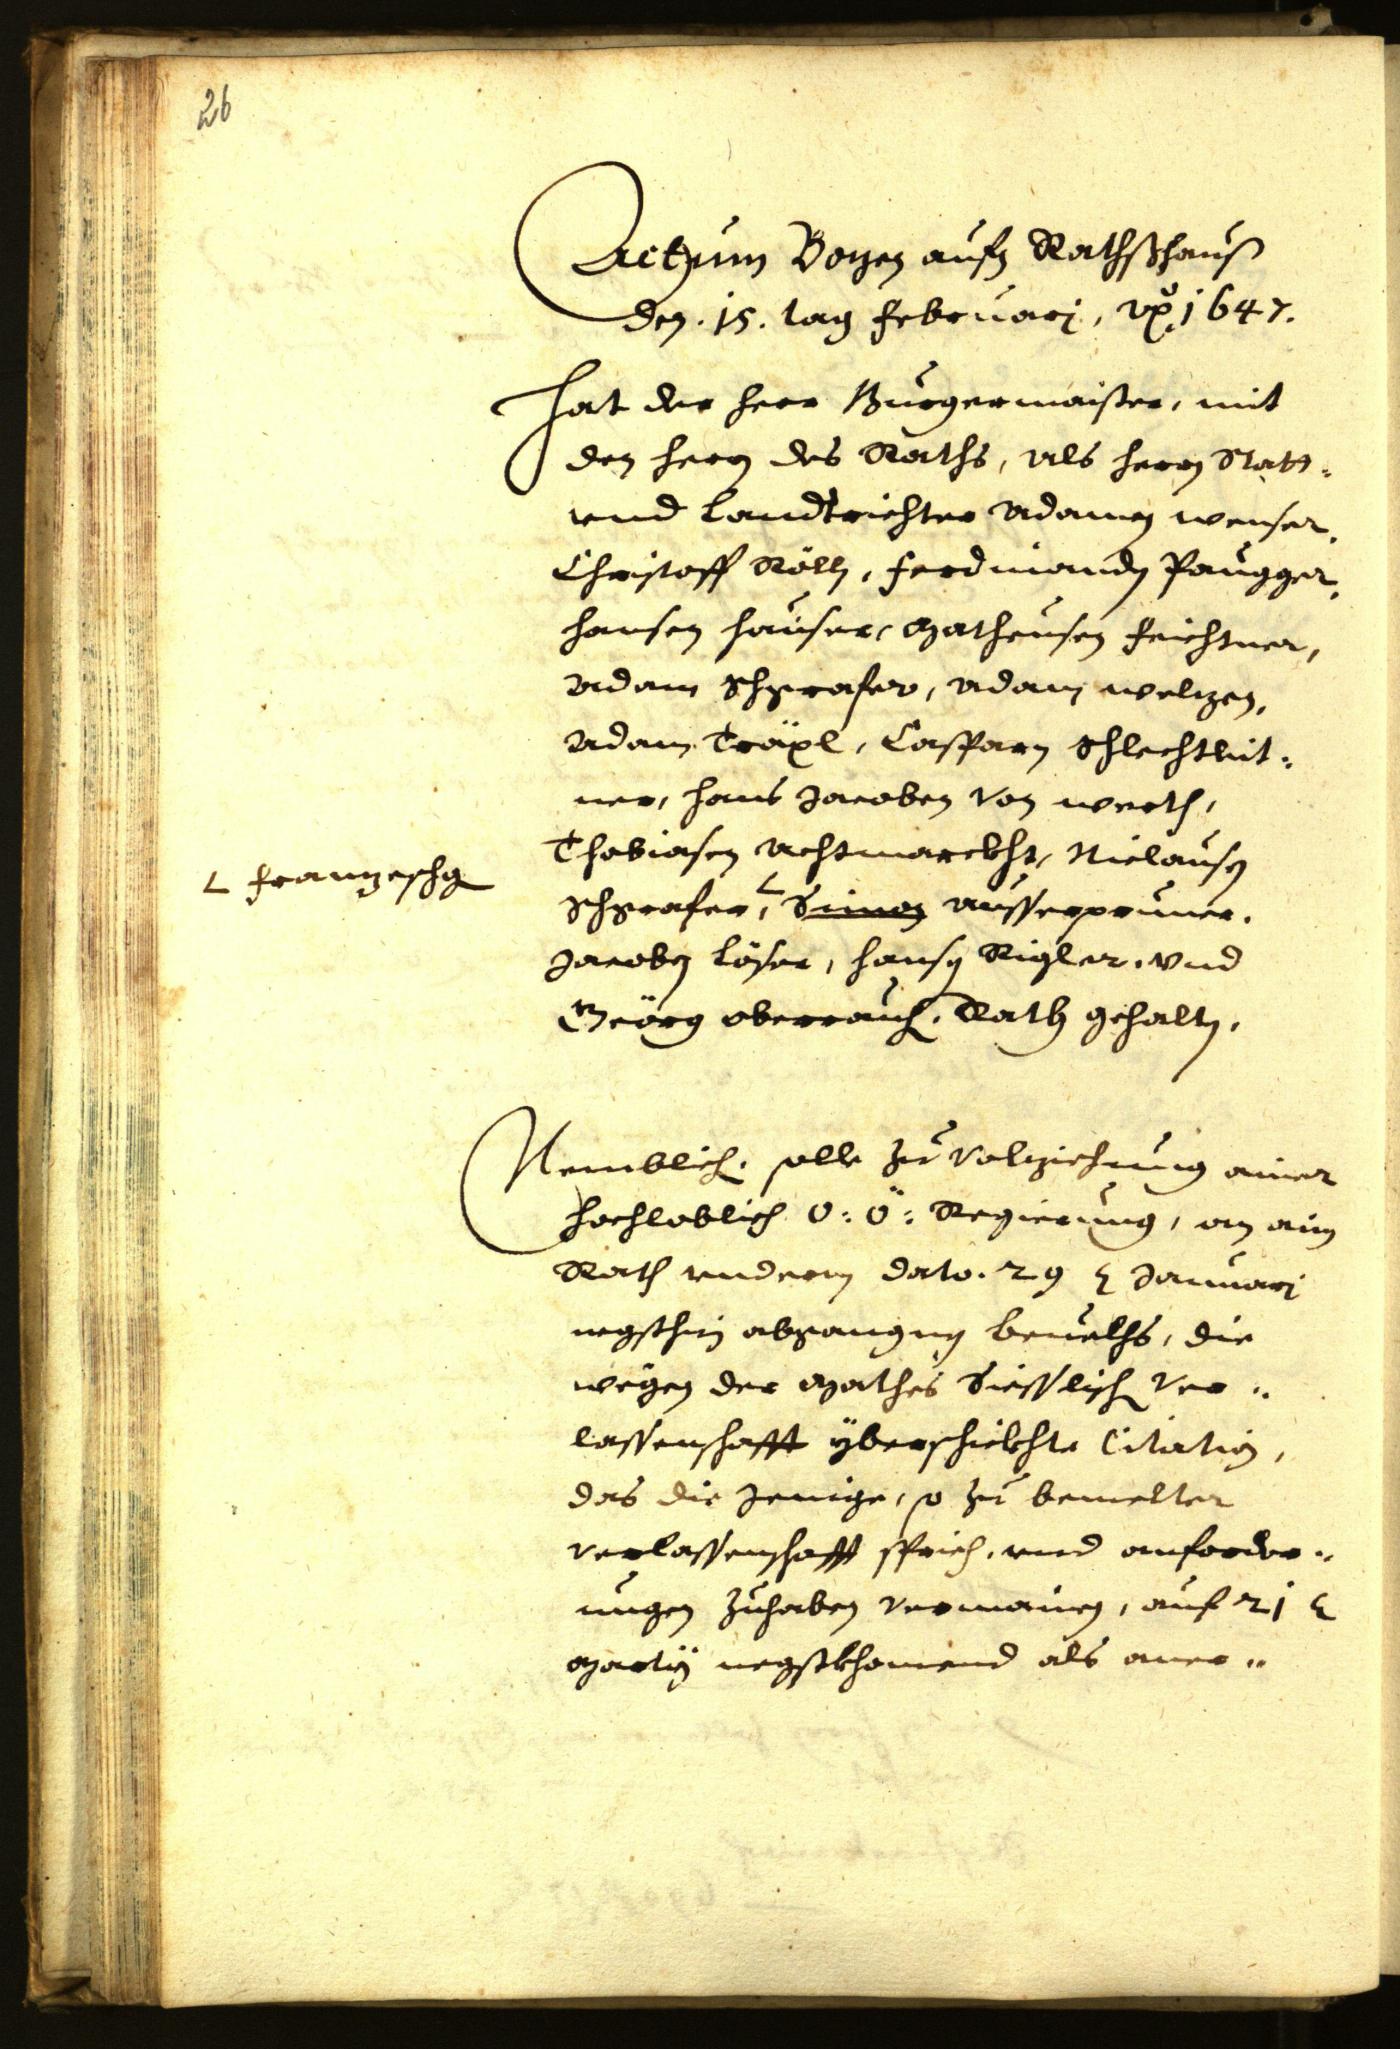 26
Actum Bozen aufm Rathshauß
den. 15. tag februarj, Aõ. 1647.
Hat der herr Burgermaister, mit
den herrn des Raths, als herrn Statt-
vnd Landtrichter Adamen wenser,
Christoff Röll, ferdinandn Paugger,
hansen hauser, Matheusen feichtner,
Adam Schgrafer, Adam weltzen,
Adam Träxl, Casparn Schlechtleit-
ner, hans Jacoben von werth,
Thobiasen Achtmarckht, Niclausn
L franzeschg
Schgrafer, L Simon Ausserprunner.
Jacobn löser, hansn Rigler. vnd
Georg oberrauch. Rath gehaltn.
Nemblich. solle zu volziehung ainer
hochloblich O: Ö: Regierung, an ain
Rath vnderm dato. 29 Januarj
negsthin abgangnen beuelhs, die
wegen der Mathes Siesslich ver-
lassenschafft yberschickhte Citation,
das die Jenige, so zu bemelter
verlassenschafft sprich. vnd anforder-
ungen zuhaben vermainen, auf 21
Martij negstkhomend als aner-